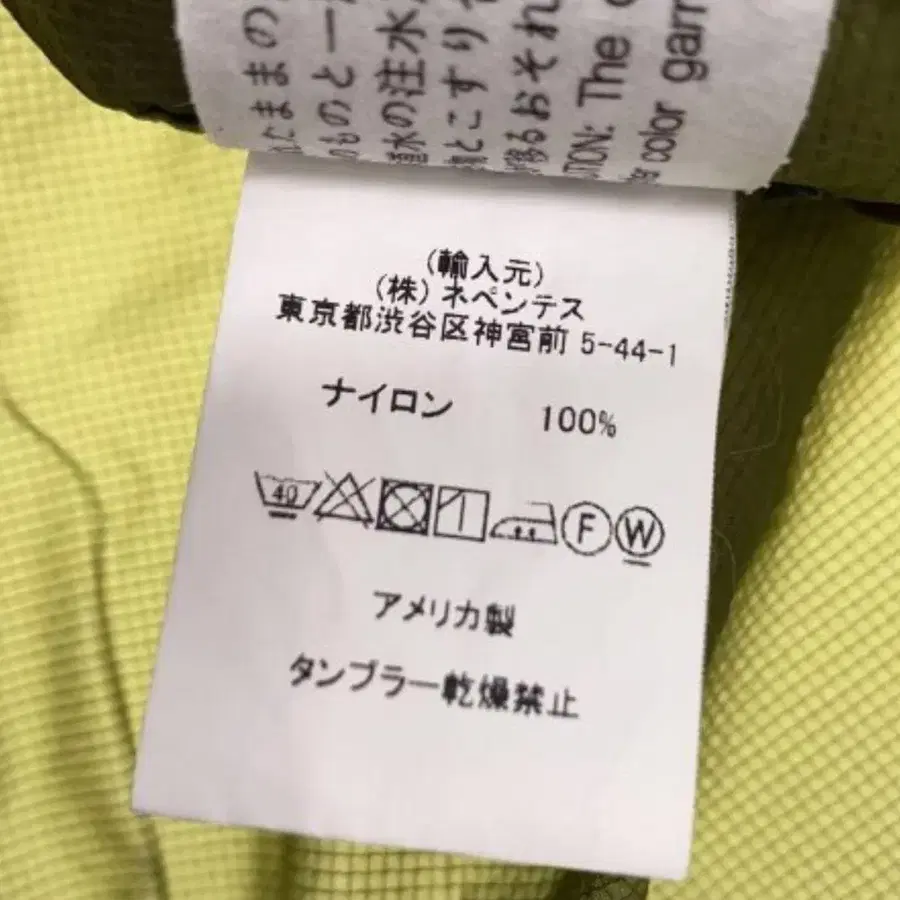 まの
たままの
ものと一
水の注水
とこすりそ
移るおそれ
The
color garm
(輸入元)
(株) ネペンテス
東京都渋谷区神宮前 5-44-1
ナイロン 100%
40
F W
アメリカ製
タンブラー乾燥禁止